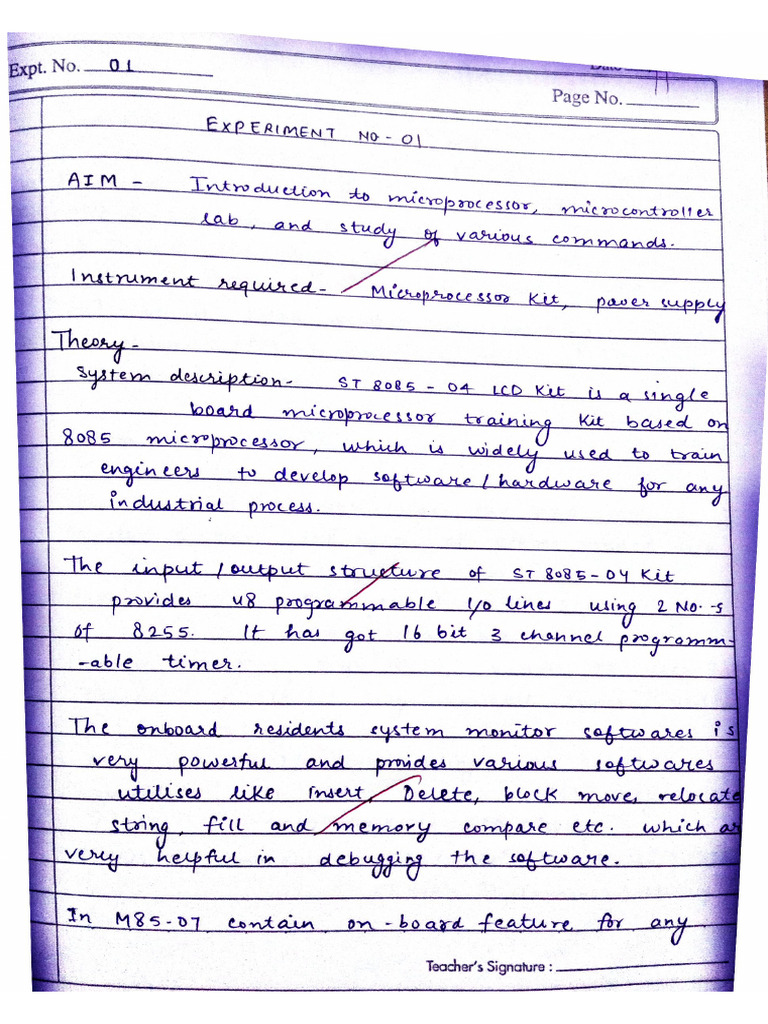 Expt. No. 01
Page No.
EXPERIMENT NO - 01
AIM - Introduction to microprocessor, microcontroller
lab, and study of various commands.
Instrument required - Microprocessor Kit, power supply
Theory -
System description - ST 8085 - 04 LCD Kit is a single
board microprocessor training Kit based on
8085 microprocessor, which is widely used to train
engineers to develop software / hardware for any
industrial process.
The input / output structure of ST 8085-04 Kit
provides 48 programmable I/O lines using 2 No.-s
of 8255. It has got 16 bit 3 channel programm-
-able timer.
The onboard residents system monitor softwares is
very powerful and provides various softwares
utilises like insert, Delete, block move, relocate
string, fill and memory compare etc. which ar
very helpful in debugging the software.
In M85-07 contain on-board feature for any
Teacher's Signature :